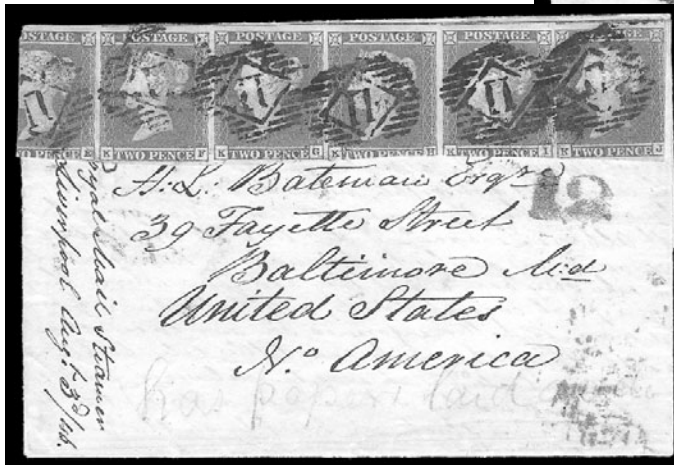 POSTAGE POSTAGE POSTAGE POSTAGE POSTAGE POSTAGE
E K TWO PENCE F K TWO PENCE G K TWO PENCE H K TWO PENCE I K TWO PENCE J
H. L. Bateman Esqre
12
39 Fayette Street
Baltimore Md
United States
No. America
Royal Mail Steamer
Liverpool Augt. 3d/46.